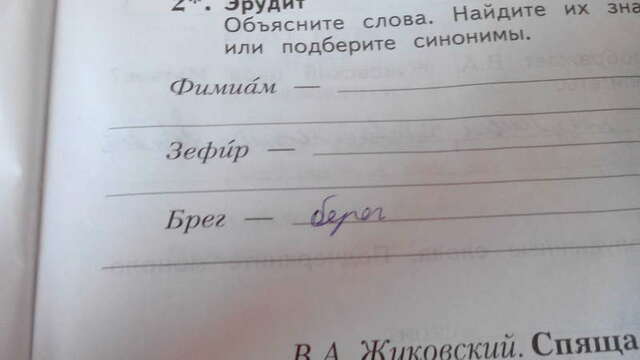 2*. Эрудит
Объясните слова. Найдите их зна
или подберите синонимы.
Фимиа́м —
Зефи́р —
Брег — берег
В.А. Жуковский. Спяща